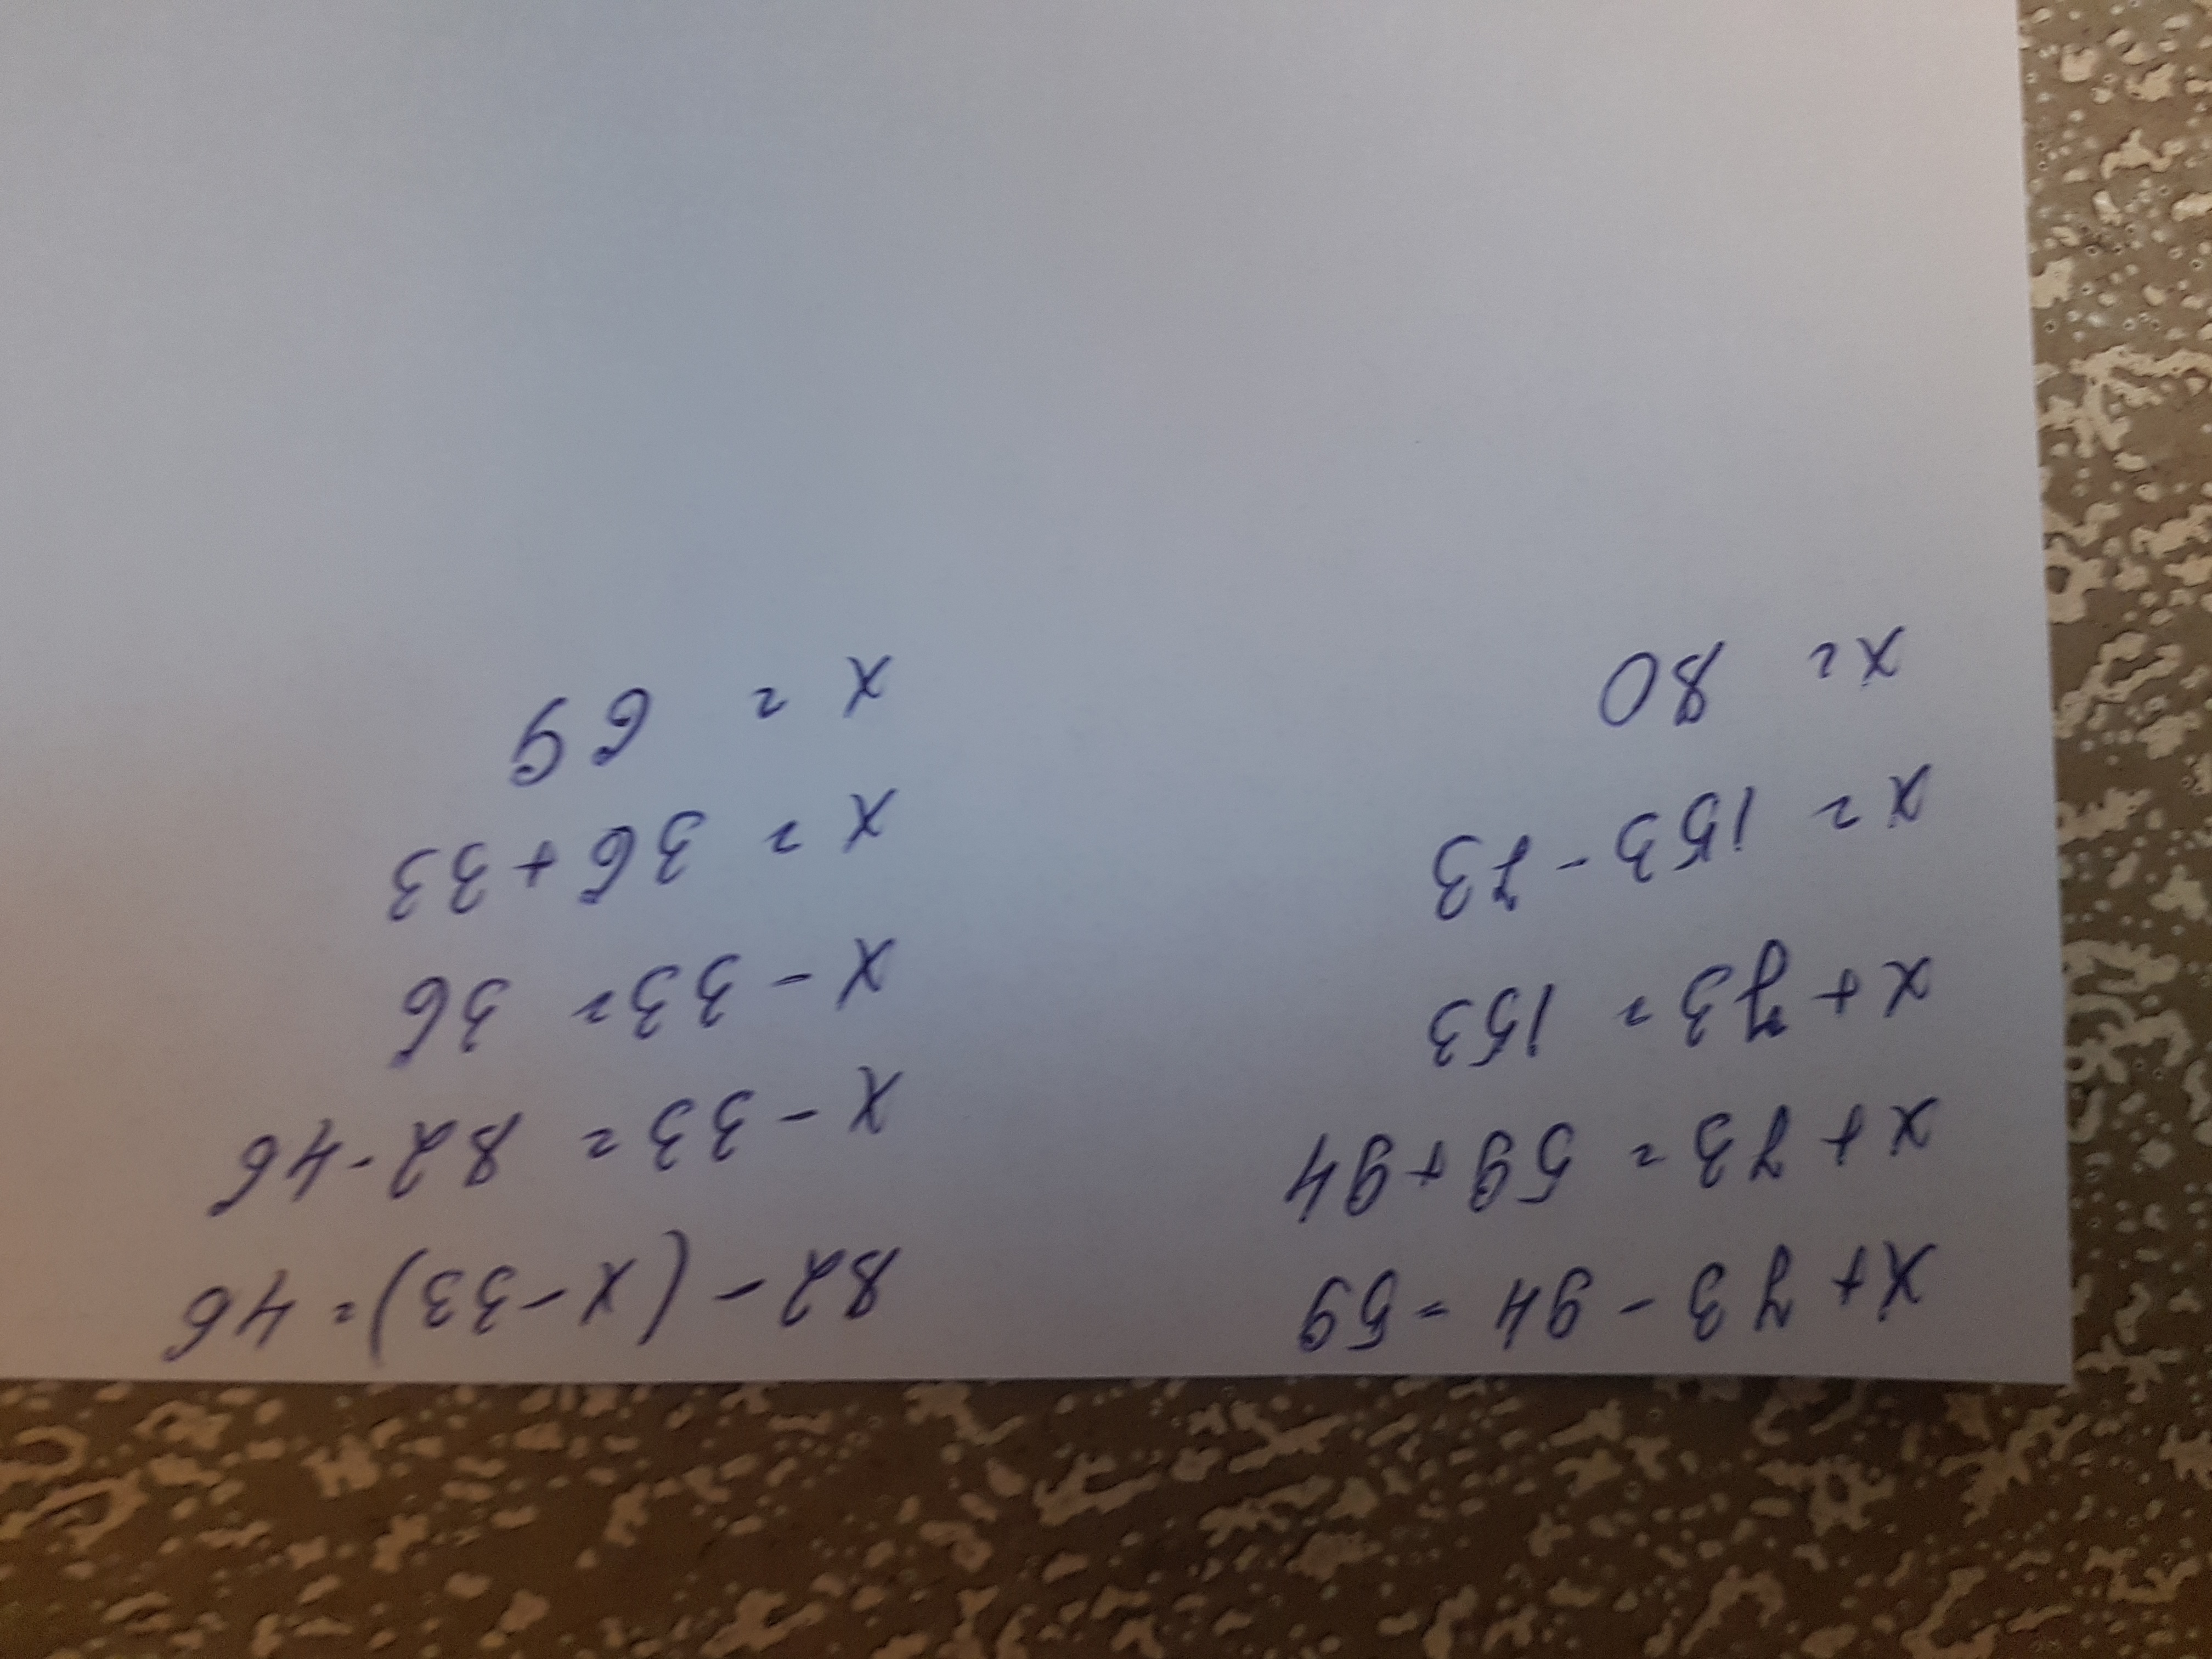 x+73-94=59
x+73=59+94
x+73=153
x=153-73
x=80
82-(x-33)=46
x-33=82-46
x-33=36
x=36+33
x=69